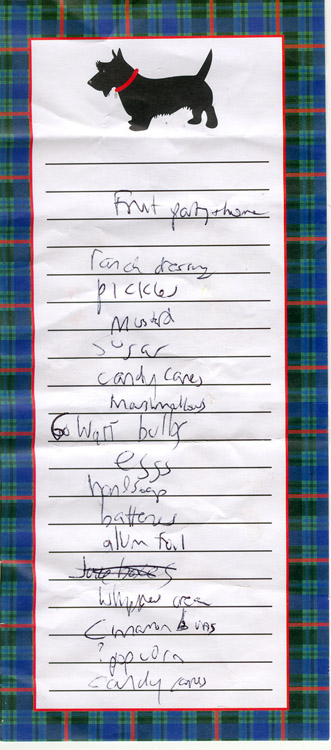 Fruit party + home
ranch dressing
pickles
mustard
sugar
candy canes
marshmallows
60 watt bulbs
eggs
hand soap
batteries
alum foil
juice boxes
whipped cream
Cinnamon buns
? popcorn
candy canes